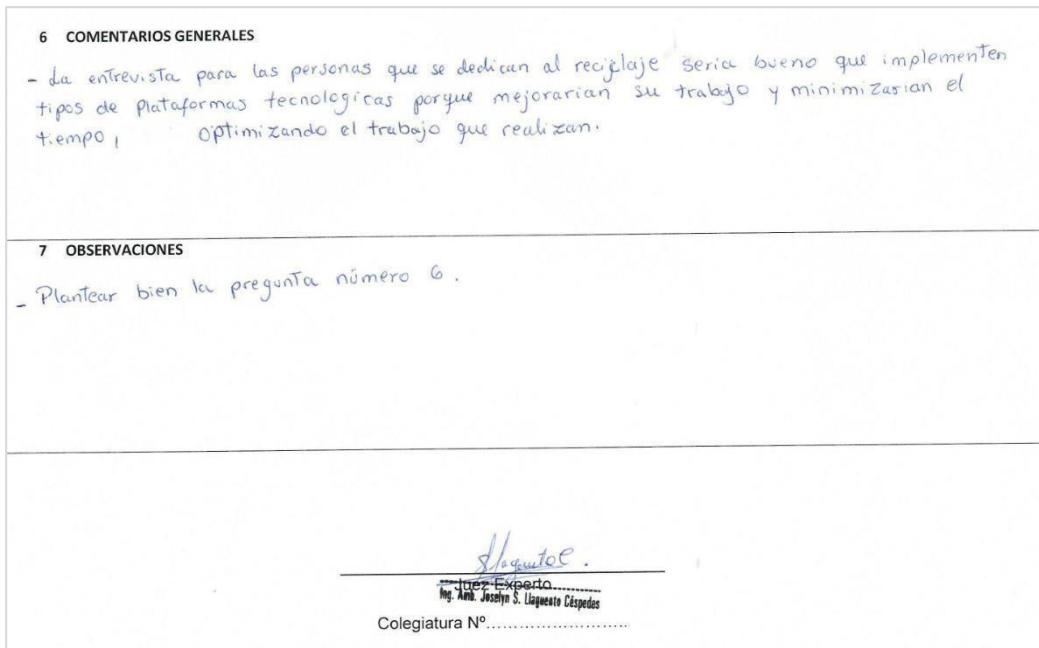 6 COMENTARIOS GENERALES
- La entrevista para las personas que se dedican al reciclaje seria bueno que implementen
tipos de Plataformas tecnologicas porque mejorarian su trabajo y minimizarian el
tiempo, optimizando el trabajo que realizan.
7 OBSERVACIONES
- Plantear bien la pregunta número 6.
Juez Experto
Ing. Amb. Joselyn S. Llaquento Céspedes
Colegiatura Nº..........................